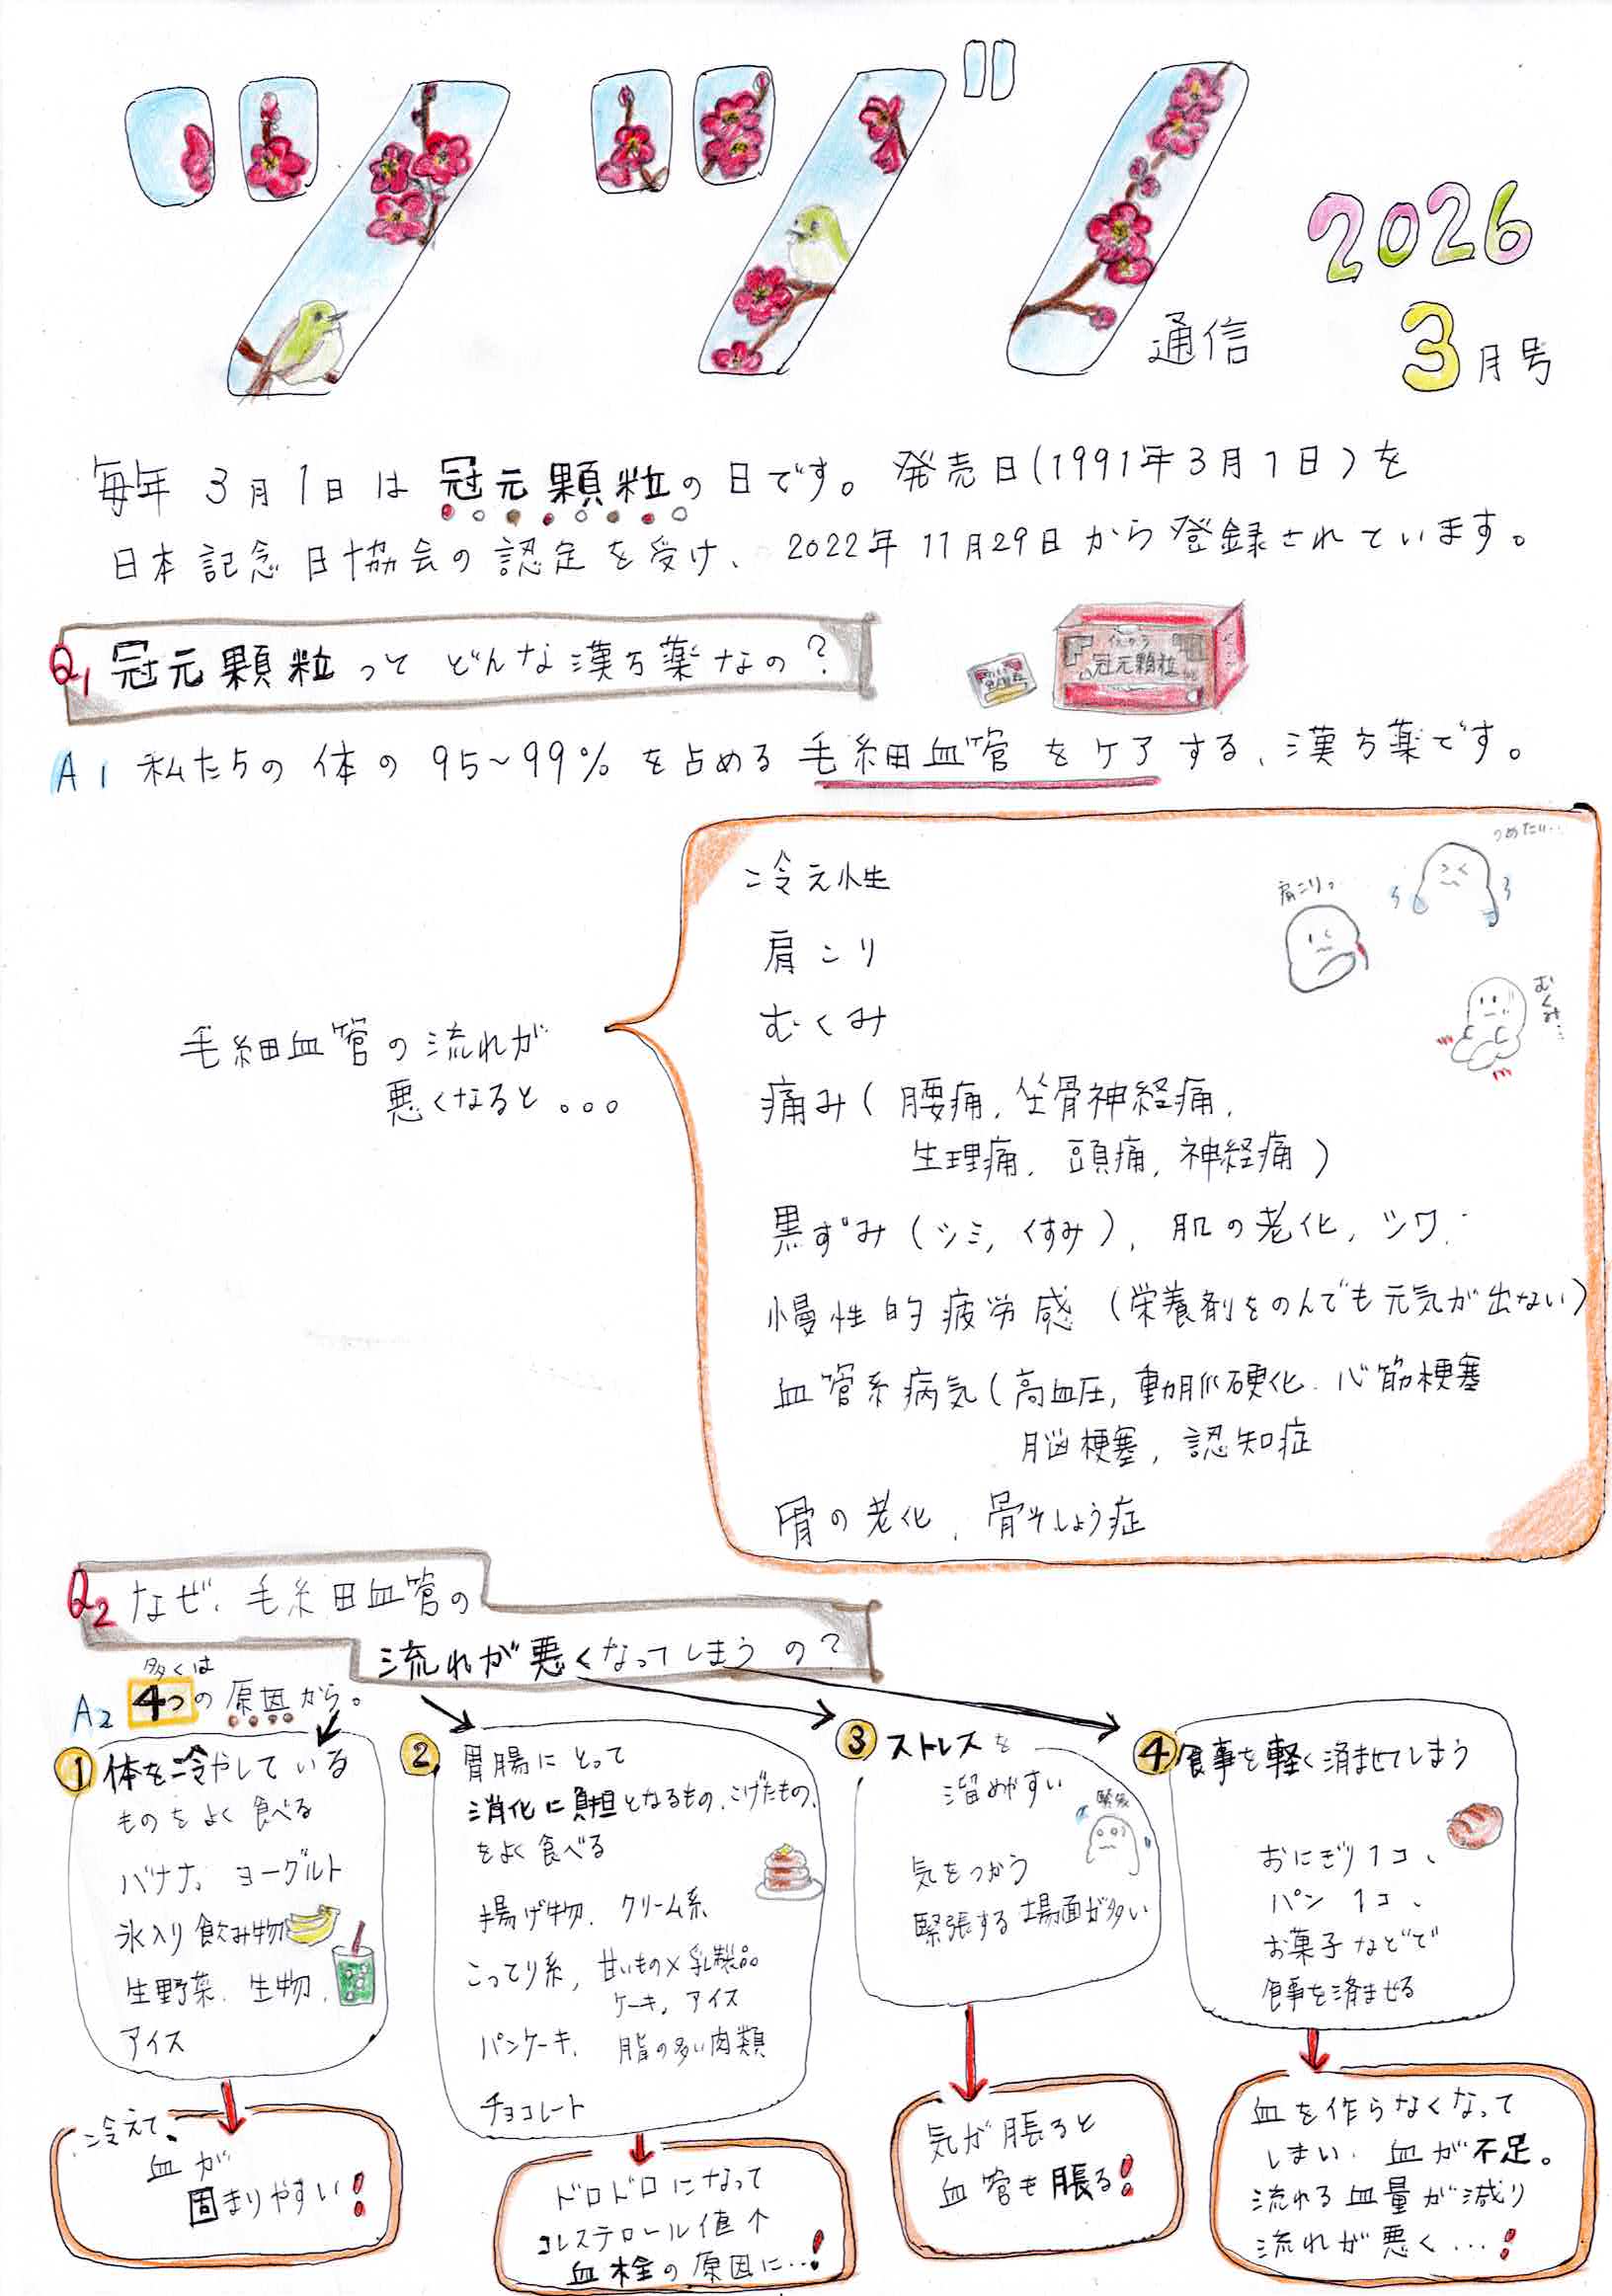 ツヅノ通信
2026
3月号
毎年 3月1日は 冠元顆粒の日です。発売日(1991年3月1日)を
日本記念日協会の認定を受け、2022年11月29日から登録されています。
Q1 冠元顆粒って どんな漢方薬なの?
冠元顆粒
A1 私たちの体の95~99%を占める毛細血管をケアする、漢方薬です。
毛細血管の流れが
悪くなると。。。
つめたい…
冷え性
肩こりっ
肩こり
むくみ
むくみ…
痛み(腰痛、坐骨神経痛、
生理痛、頭痛、神経痛)
黒ずみ(シミ、くすみ)、肌の老化、シワ
慢性的疲労感(栄養剤をのんでも元気が出ない)
血管系病気(高血圧、動脈硬化、心筋梗塞
脳梗塞、認知症
骨の老化、骨そしょう症
Q2 なぜ、毛細血管の
流れが悪くなってしまうの?
多くは
A2 4つの原因から。
① 体を冷やしている
ものをよく食べる
バナナ、ヨーグルト
氷入り飲み物
生野菜、生物、
アイス
冷えて、
血が
固まりやすい!
② 胃腸にとって
消化に負担となるもの、こげたもの、
をよく食べる
揚げ物、クリーム系
こってり系、甘いもの×乳製品
ケーキ、アイス
パンケーキ、脂の多い肉類
チョコレート
ドロドロになって
コレステロール値↑
血栓の原因に…!
③ ストレスを
溜めやすい
緊張
気をつかう
緊張する場面が多い
気が張ると
血管も張る!
④ 食事を軽く済ませてしまう
おにぎり1コ、
パン1コ、
お菓子などで
食事を済ませる
血を作らなくなって
しまい、血が不足。
流れる血量が減り
流れが悪く…!